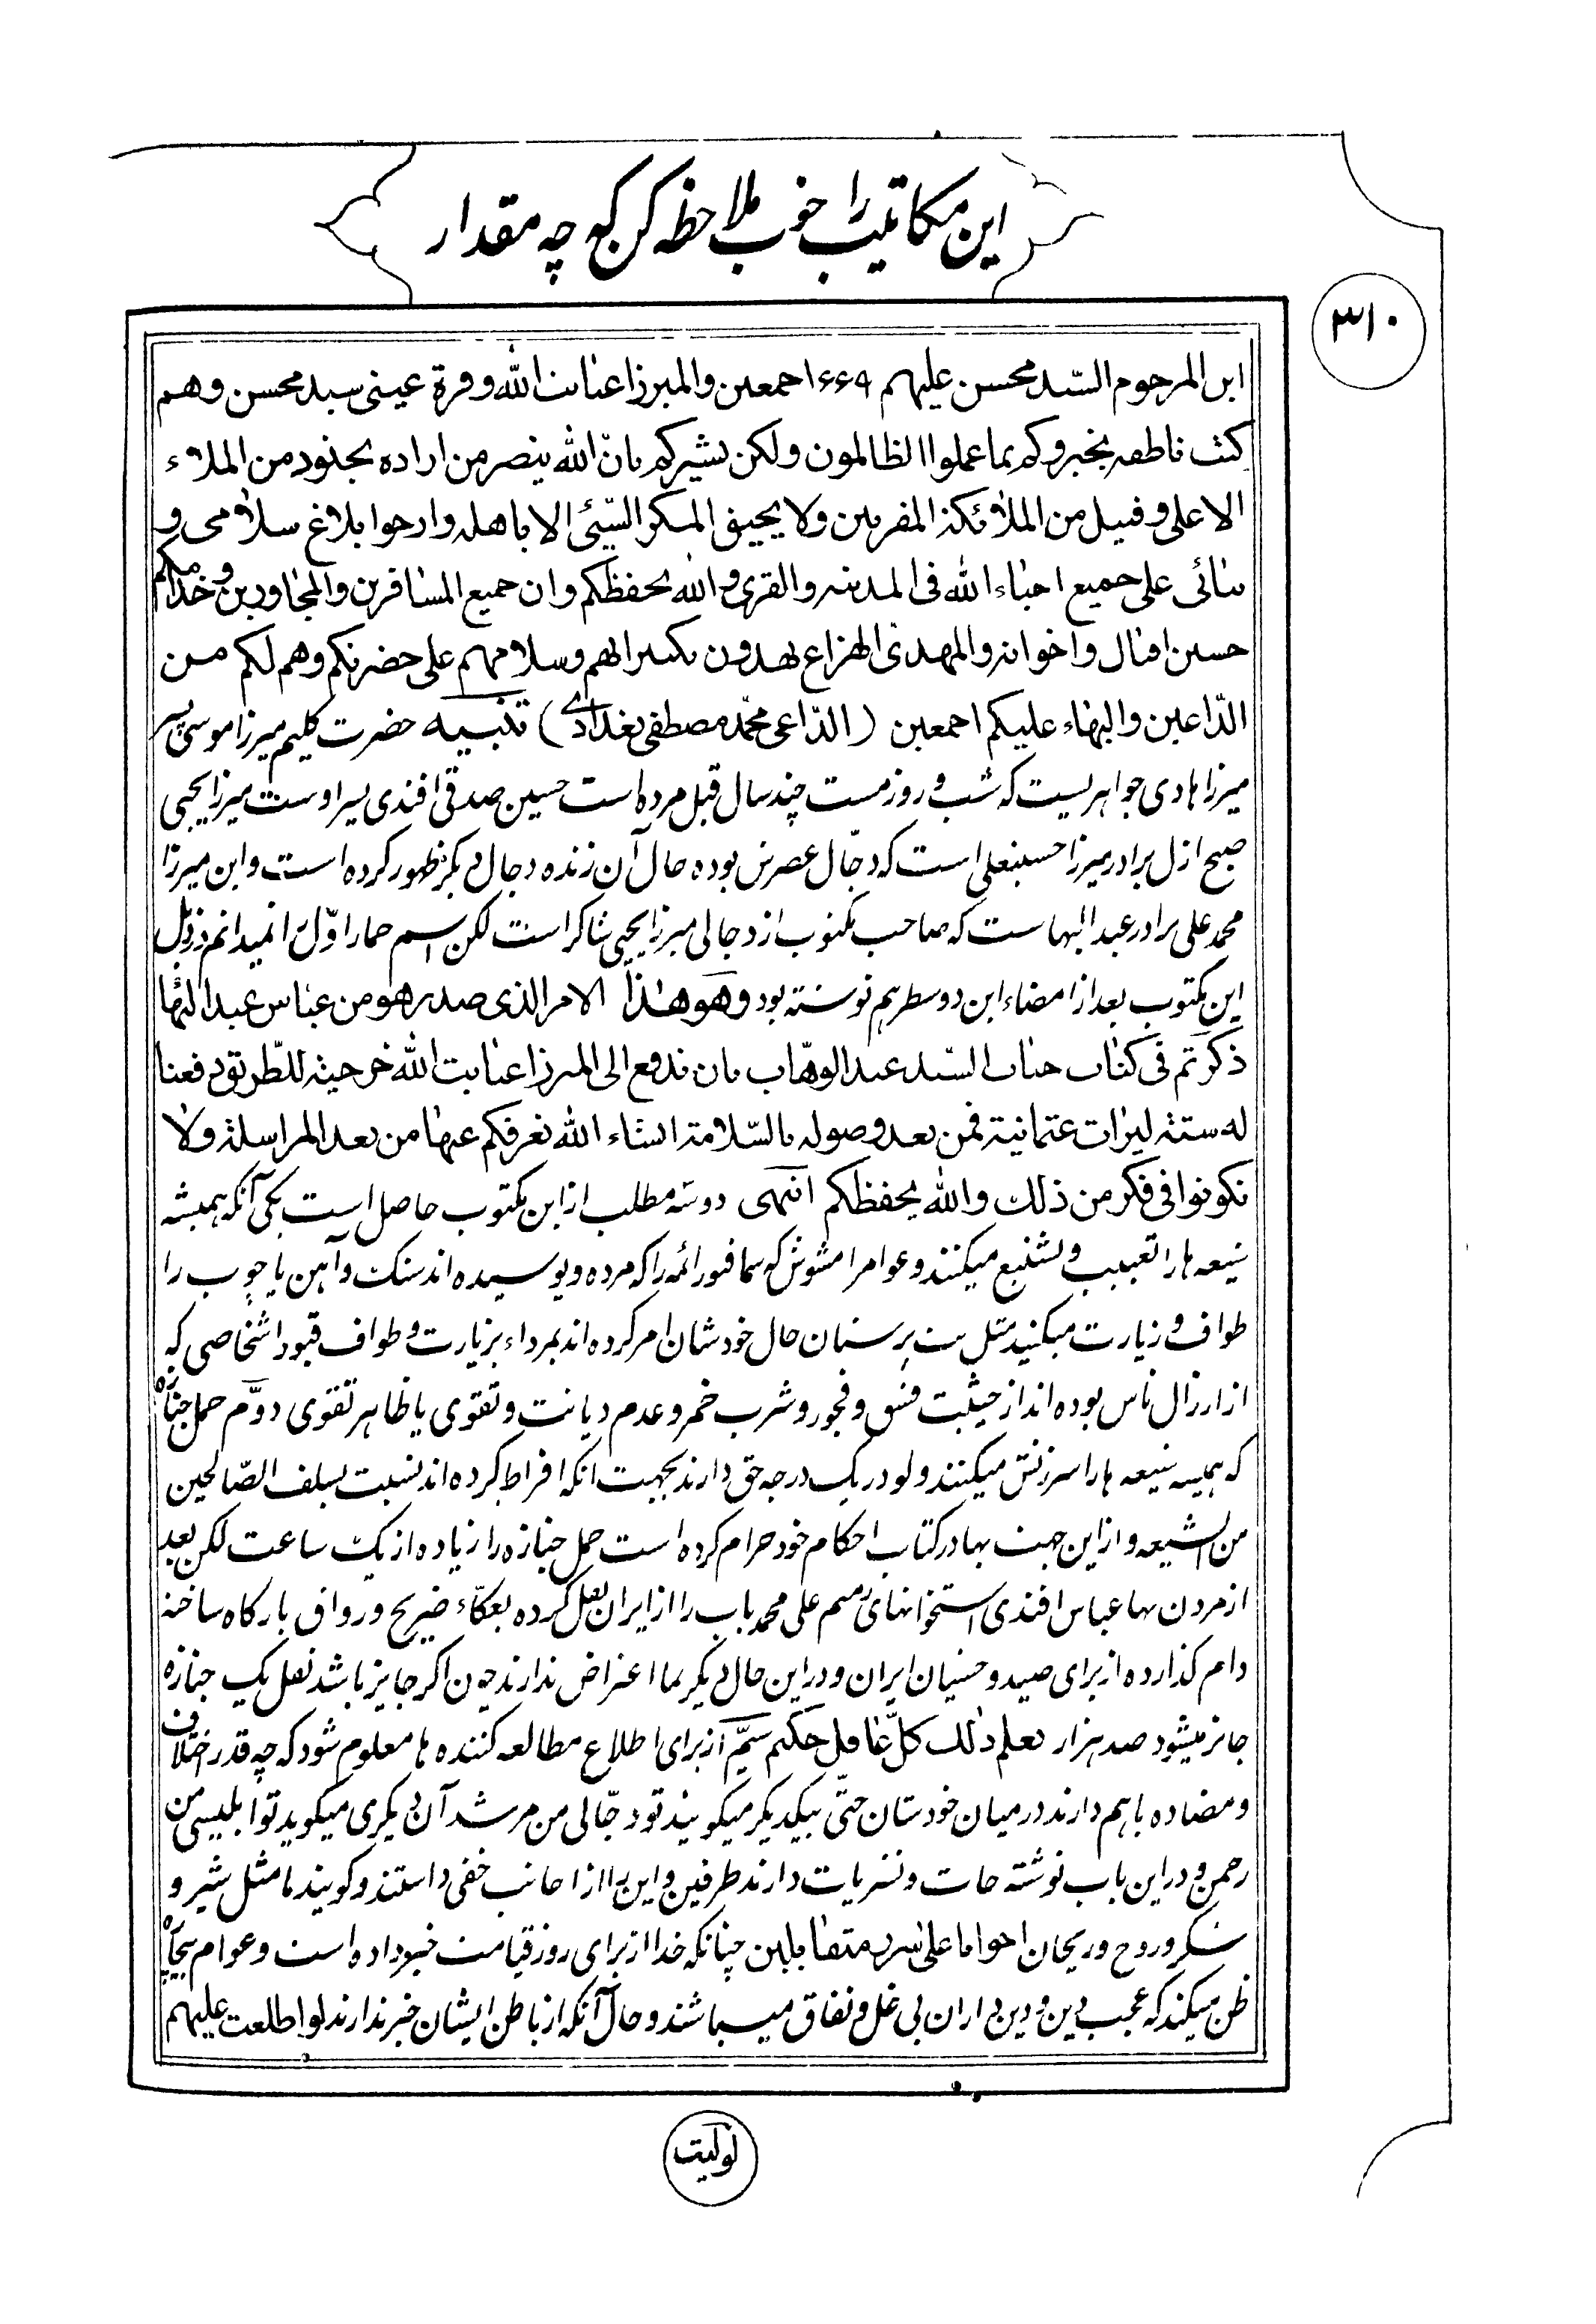 این مکاتیب را خوب ملاحظه کن که چه مقدار
۳۱۰
ابن المرحوم السّید محسن علیهم ۶۶۹ اجمعین والمیرزا عنایت الله وقرة عینی سید محسن وهم
کتب ناطقه یخبروکم بما عملوا الظالمون ولکن بشیرکم بانّ الله ینصر من اراده بجنود من الملاء
الاعلی وقبیل من الملائکة المقربین ولا یحیق المکر السّیئی الا باهله وارجوا بلاغ سلامی و
ثنائی علی جمیع احباء الله فی المدینه والقری والله یحفظکم وان جمیع المسافرین والمجاورین وخدامکم
حسین اقبال واخوانه والمهدی الهزاع یهدون تکبیراتهم وسلامهم علی حضرتکم وهم لکم من
الدّاعین والبهاء علیکم اجمعین (الدّاعی محمّد مصطفی بغدادی) تنبیه حضرت کلیم میرزا موسی پسر
میرزا هادی جواهریست که شب و روز مست چند سال قبل مرده است حسین صدقی افندی پسر اوست میرزا یحیی
صبح ازل برادر میرزا حسینعلی است که دجّال عصرش بوده حال آن زنده دجال دیگر ظهور کرده است و ابن میرزا
محمد علی برادر عبدالبهاست که صاحب مکتوب از دجالی میرزا یحیی شاکر است لکن اسم حمار اوّل را نمیدانم در ذیل
این مکتوب بعد از امضاء ابن دو سطر هم نوشته بود وهو هذا الامر الذی صدر هو من عباس عبد البهاء
ذکرتم فی کتاب جناب السّید عبد الوهّاب بان ندفع الی المیرزا عنایت الله خرجیته للطّریق دفعنا
له ستة لیرات عثمانیة فمن بعد وصوله بالسّلامة انشاء الله نعرفکم عنها من بعد المراسلة ولا
تکونوا فی فکر من ذلک والله یحفظکم انتهی دو سه مطلب از این مکتوب حاصل است یکی آنکه همیشه
شیعه ها را تعییب و تشنیع میکنند و عوام را مشوش که شما قبور ائمه را که مرده و پوسیده اند سنک و آهن یا چوب را
طواف و زیارت میکنید مثل بت پرستان حال خودشان امر کرده اند بمرداء بزیارت و طواف قبور اشخاصی که
از ارزال ناس بوده اند از حیثیت فسق و فجور و شرب خمر و عدم دیانت و تقوی یا ظاهر تقوی دوّم حمل جنازه
که همیشه شیعه ها را سرزنش میکنند ولو در یک درجه حق دارند بجهت انکه افراط کرده اند نسبت بسلف الصّالحین
من الشیعه و از این جهت بها در کتاب احکام خود حرام کرده است حمل جنازه را زیاده از یک ساعت لکن بعد
از مردن بها عباس افندی استخوانهای رمیم علی محمد باب را از ایران نقل کرده بعکّاء ضریح و رواق بارکاه ساخته
دام کذارده از برای صید وحشیان ایران و در این حال دیکر بما اعتراض ندارند چون اکر جایز باشد نقل یک جنازه
جایز میشود صد هزار یعلم ذلک کلّ عاقل حکیم سیّم از برای اطلاع مطالعه کننده ها معلوم شود که چه قدر اختلاف
و مضاده با هم دارند در میان خودشان حتّی بیکدیکر میکویند تو دجّالی من مرشد آن دیکری میکوید تو ابلیسی من
رحمن و در این باب نوشته جات و نشریات دارند طرفین و این را از اجانب خفی داشتند و کویند ما مثل شیر و
شکر و روح و ریحان اخوانا علی سرر متقابلین چنانکه خدا از برای روز قیامت خبر داده است و عوام بیچاره
ظن میکند که عجب دین و دین داران بی غل و نفاق میباشند و حال آنکه از باطن ایشان خبر ندارند لو اطلعت علیهم
لولیت